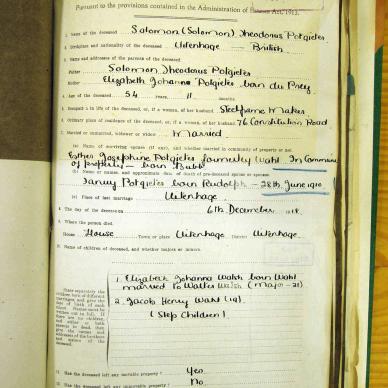 Pursuant to the provisions contained in the Administration of Estates Act, 1913.
1. Name of the deceased Salomon (Solomon) Theodorus Potgieter
2. Birthplace and nationality of the deceased Uitenhage — British
3. Names and addresses of the parents of the deceased
Father Salomon Theodorus Potgieter
Mother Elizabeth Johanna Potgieter born du Preez
4. Age of the deceased 54 years, 11 months
5. Occupation in life of the deceased, or, if a woman, of her husband Maker
6. Ordinary place of residence of the deceased, or, if a woman, of her husband 76 Constitution Road
7. Married or unmarried, widower or widow Married
(a) Name of surviving spouse (if any), and whether married in community of property or not
Esther Josephine Potgieter formerly Wahl In Community
of property — born
(b) Name and names, and approximate date of death of pre-deceased spouse or spouses
Potgieter born Rudolph — 28th June 1910
(c) Place of last marriage Uitenhage
8. The day of the decease 6th December
9. Where the person died
House House Town or place Uitenhage District Uitenhage
10. Names of children of deceased, and whether majors or minors
1. Elizabeth Johanna Walsh born Wahl
married to Walter Walsh (major - 21)
2. Jacob Henry Wahl
(Step Children)
State separately the
children born of different
marriages and give the
date of birth of each
minor. Names must be
written out in full. If
there are no children,
and either or both
parents be dead, then
give the names and
addresses of the brothers
and sisters of the
deceased.
11. Has the deceased left any movable property? Yes
12. Has the deceased left any immovable property? No